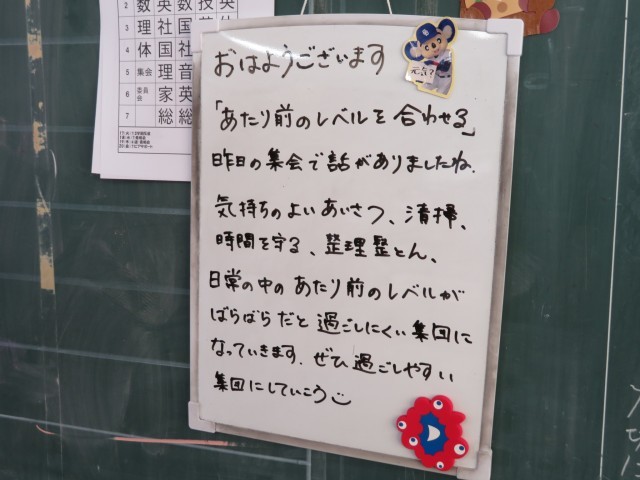 おはようございます
元気?
「あたり前のレベルを合わせる」
昨日の集会で話がありましたね.
気持ちのよいあいさつ、清掃、
時間を守る、整理整とん、
日常の中のあたり前のレベルが
ばらばらだと過ごしにくい集団に
なっていきます. ぜひ過ごしやすい
集団にしていこう
2 数 英 数 技 英
3 理 社 国
4 体 国 社
5 集会 理 音
6 委員会 家 英
7 総 総